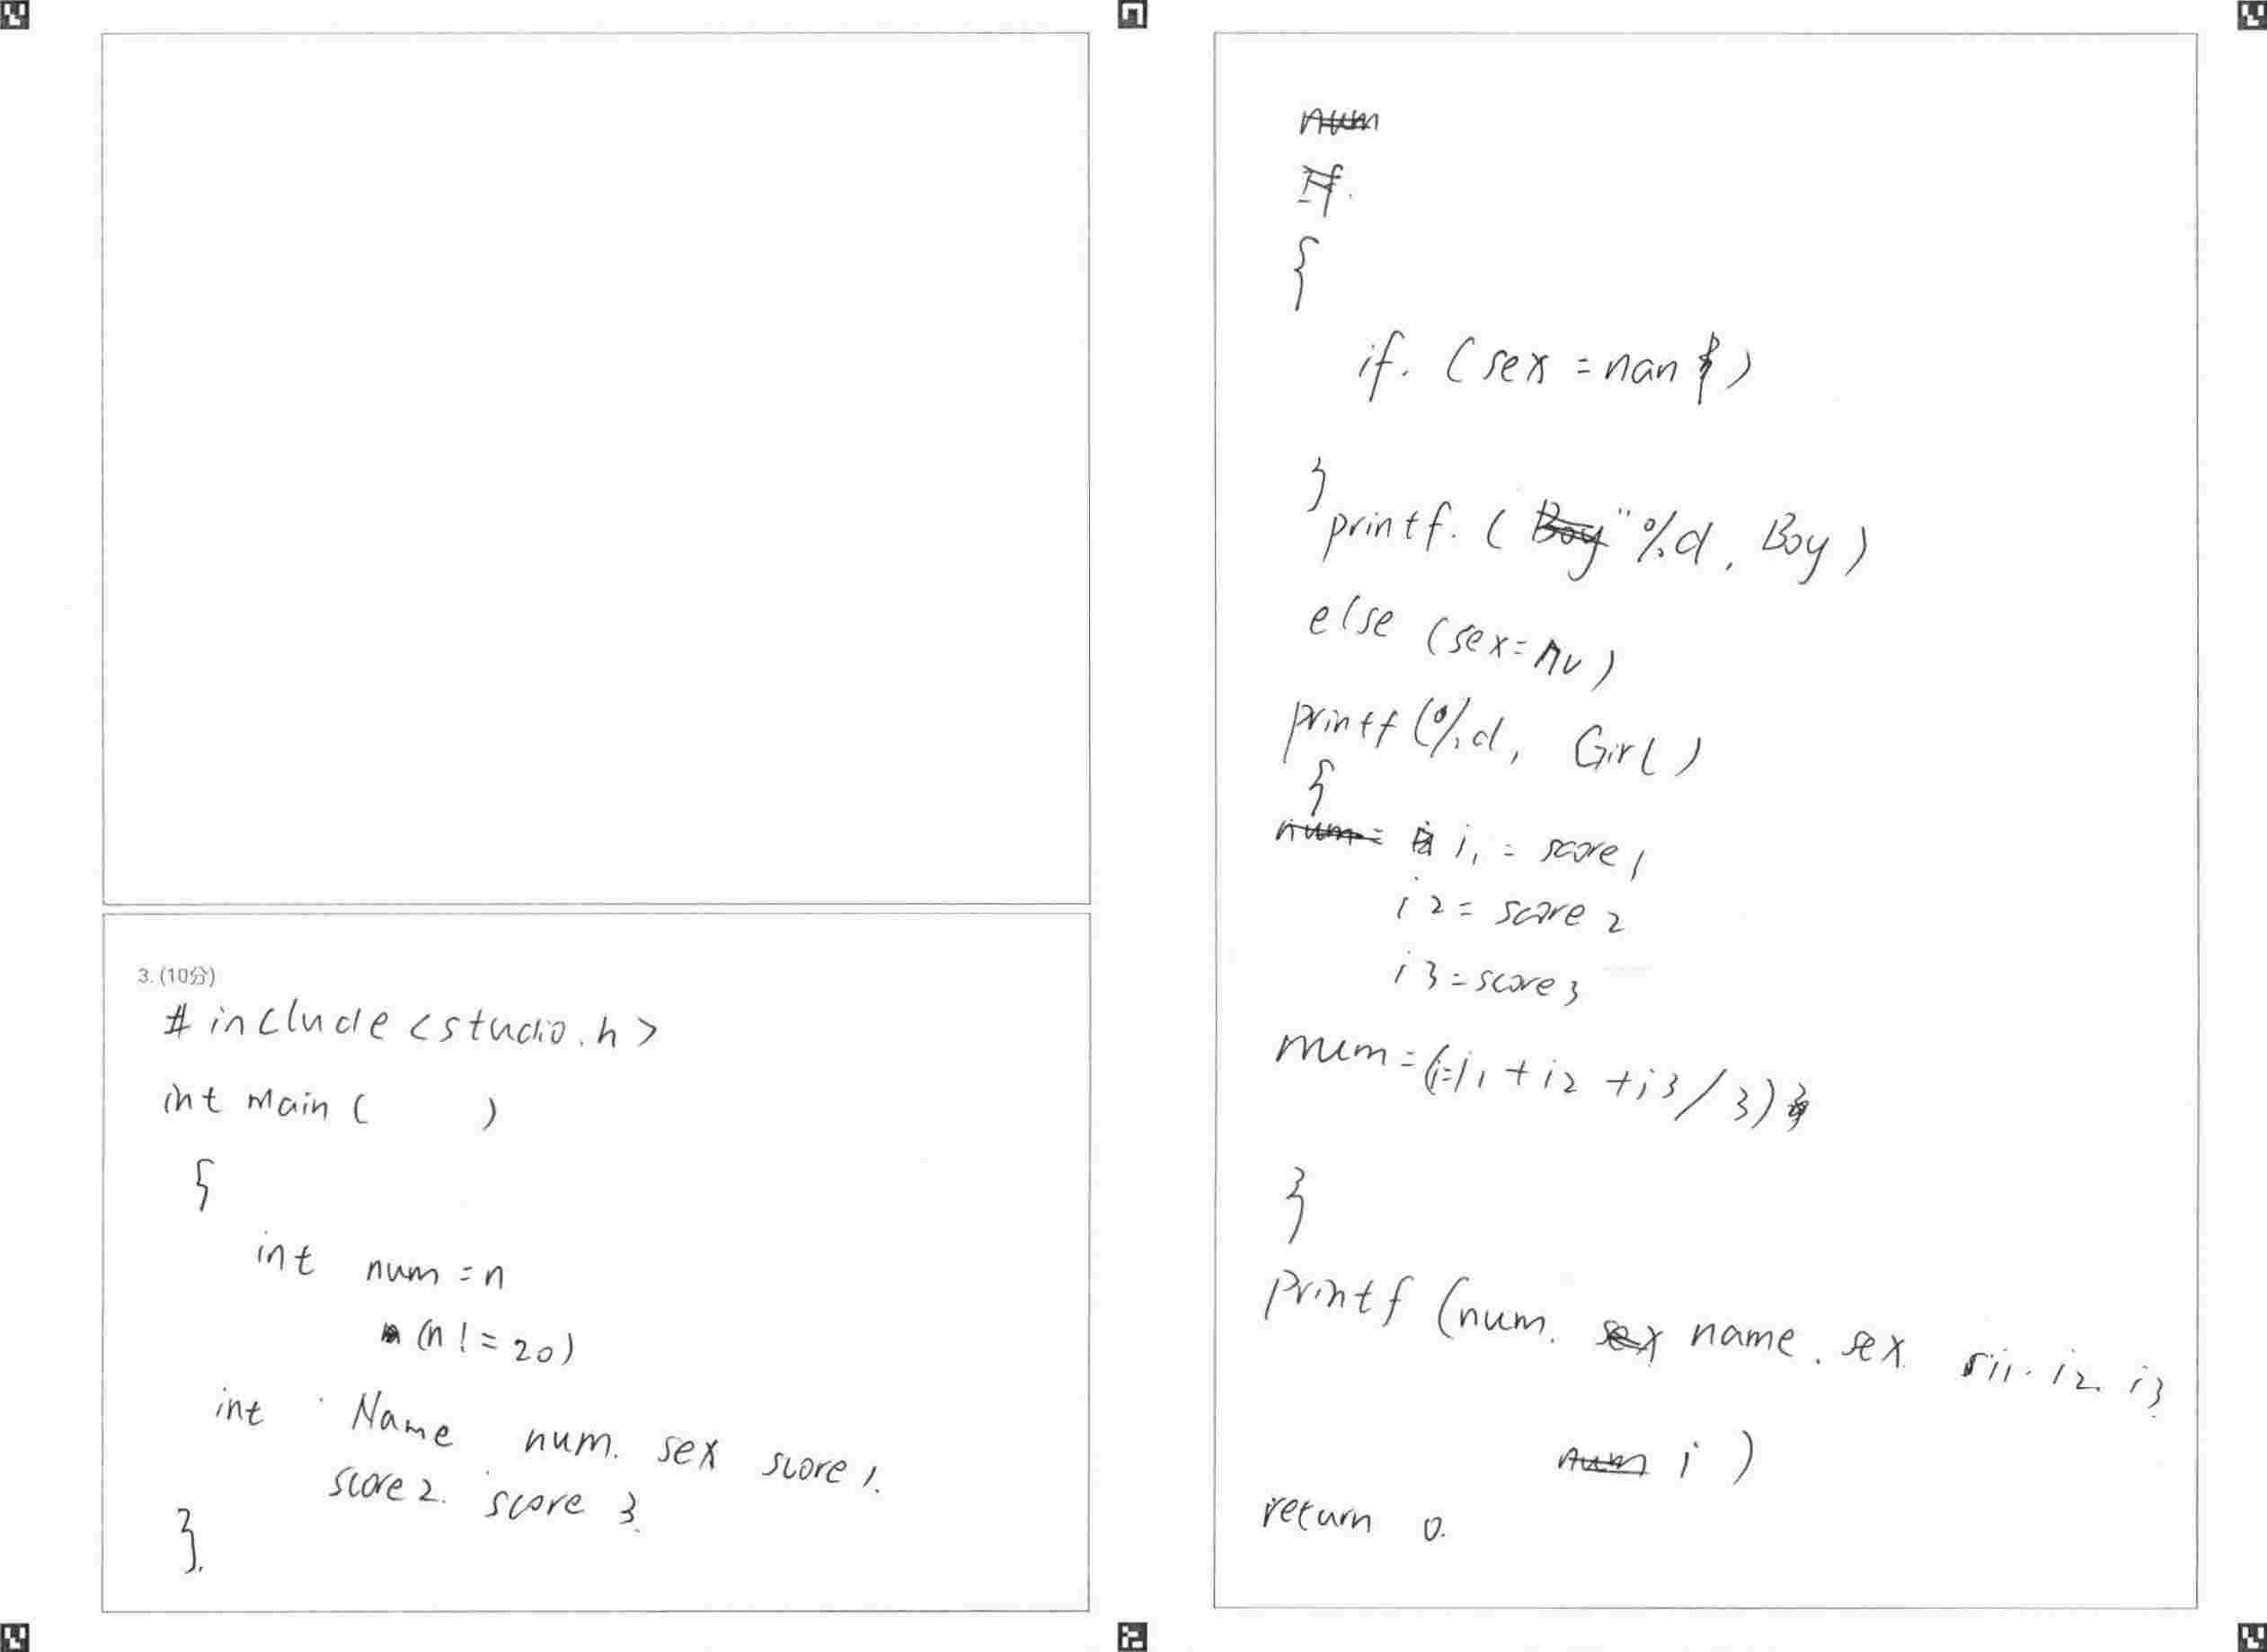 3. (10分)
# include <studio.h>
int main (      )
{
int num = n
(n != 20)
int Name num. sex score 1.
score 2. score 3.
}.
num
If.
{
if. (sex = nan )
}
printf. ( Boy "%d, Boy )
else (sex = nv )
printf (%d, Girl )
{
num = i1 = score 1
i 2 = score 2
i 3 = score 3
num = (i=i1 + i2 + i3 / 3)
}
printf (num. sex name. sex i1. i2. i3
num i )
return 0.